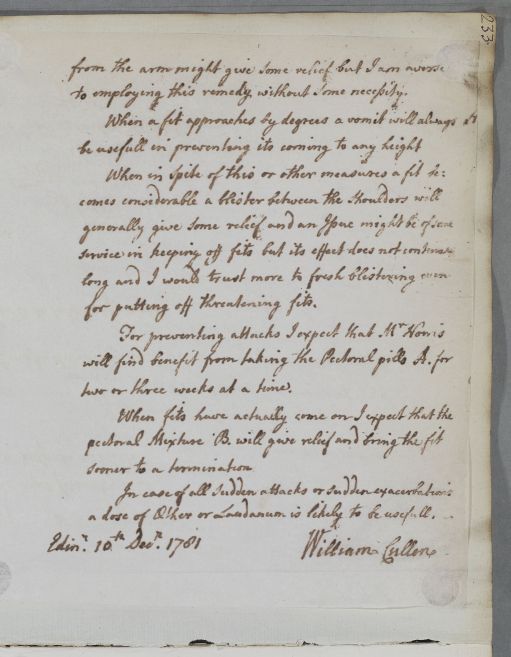 233
from the arm might give some relief but I am averse
to employing this remedy without some necessity.
When a fit approaches by degrees a vomit will always
be usefull in preventing its coming to any height
When in spite of this or other measures a fit be:
comes considerable a blister between the shoulders will
generally give some relief and an Issue might be of some
service in keeping off fits but its effect does not continue
long and I would trust more to fresh blistering even
for putting off threatening fits.
For preventing attacks I expect that Mr Norris
will find benefit from taking the Pectoral pills A. for
two or three weeks at a time.
When fits have actually come on I expect that the
pectoral Mixture B. will give relief and bring the fit
sooner to a termination
In case of all sudden attacks or sudden exacerbations
a dose of Æther or Laudanum is likely to be usefull.
Edinr. 10th Decr. 1781 William Cullen